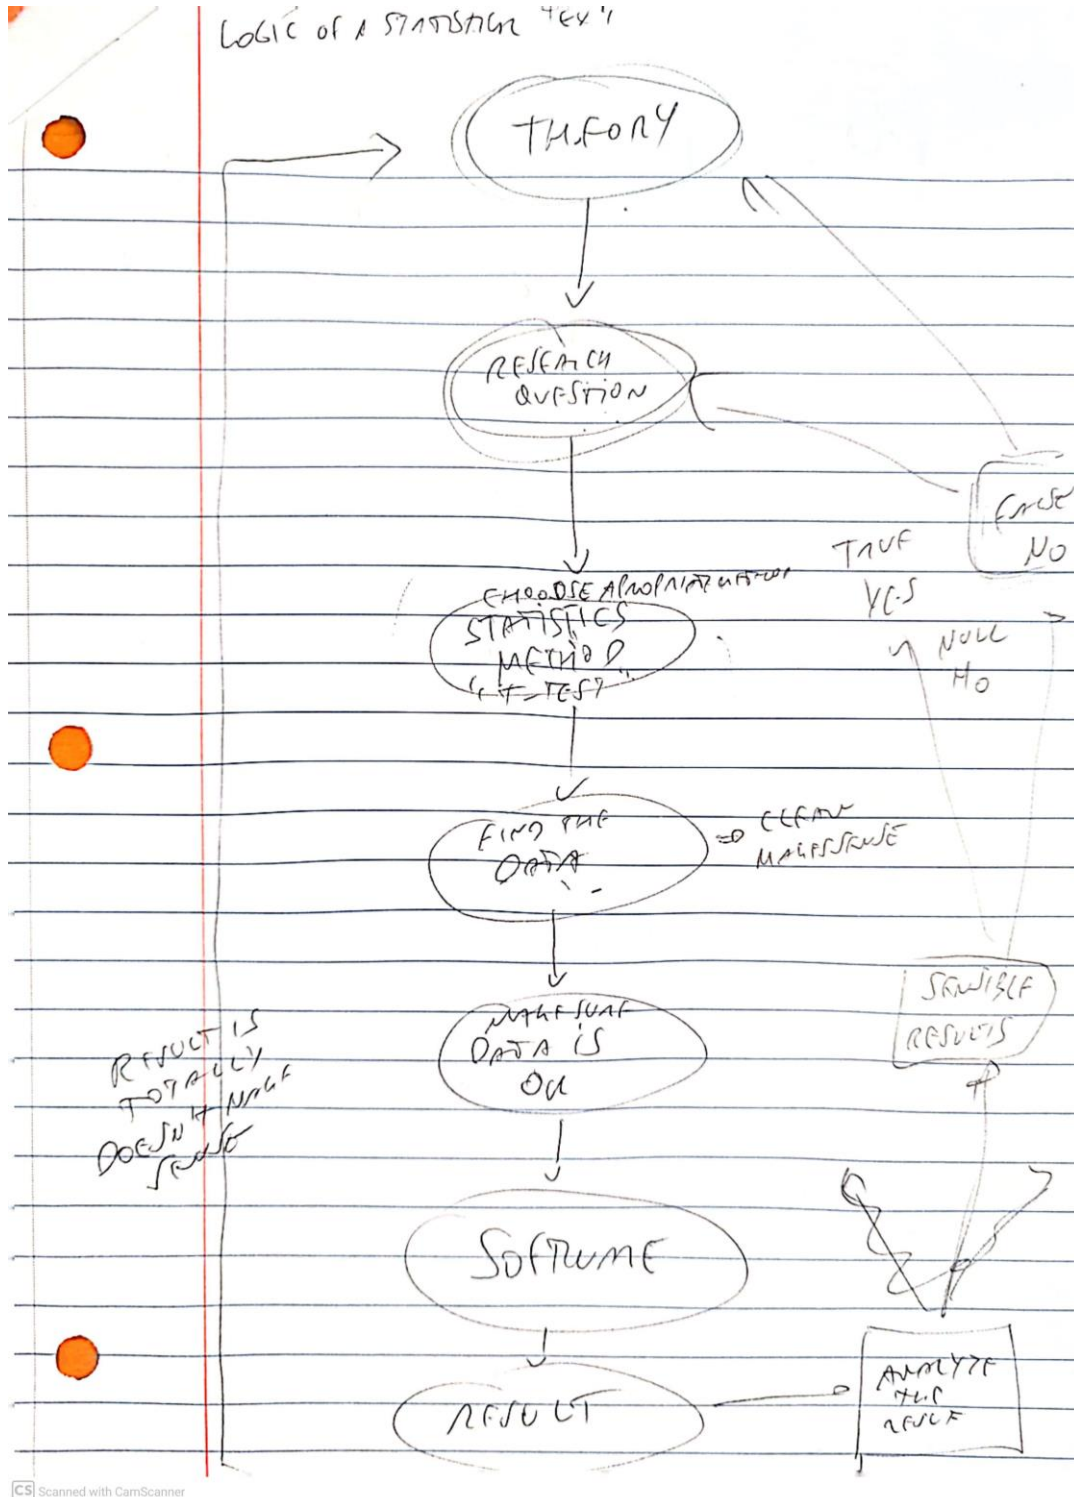 LOGIC OF A STATISTICAL TEST
THEORY
RESEARCH
QUESTION
FALSE
NO
TRUE
YES
NULL
H0
CHOOSE APROPRIATE
STATISTICS
METHOD
"T-TEST"
FIND THE
DATA
CLEAN
MAKES SENSE
MAKE SURE
DATA IS
OK
SENSIBLE
RESULTS
RESULT IS
TOTALLY
DOESN'T MAKE
SENSE
SOFTWARE
RESULT
ANALYZE
THE
RESULT
CS Scanned with CamScanner